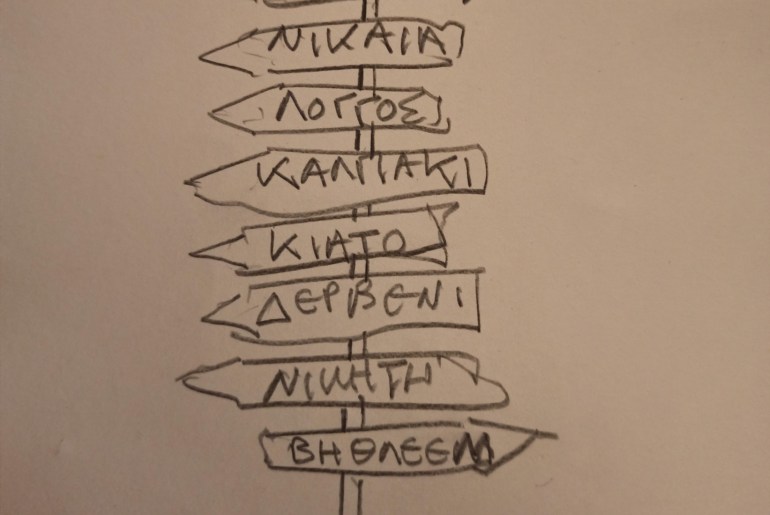 ΝΙΚΑΙΑ
ΛΟΓΓΟΣ
ΚΑΛΠΑΚΙ
ΚΙΑΤΟ
ΔΕΡΒΕΝΙ
ΝΙΚΗΤΗ
ΒΗΘΛΕΕΜ